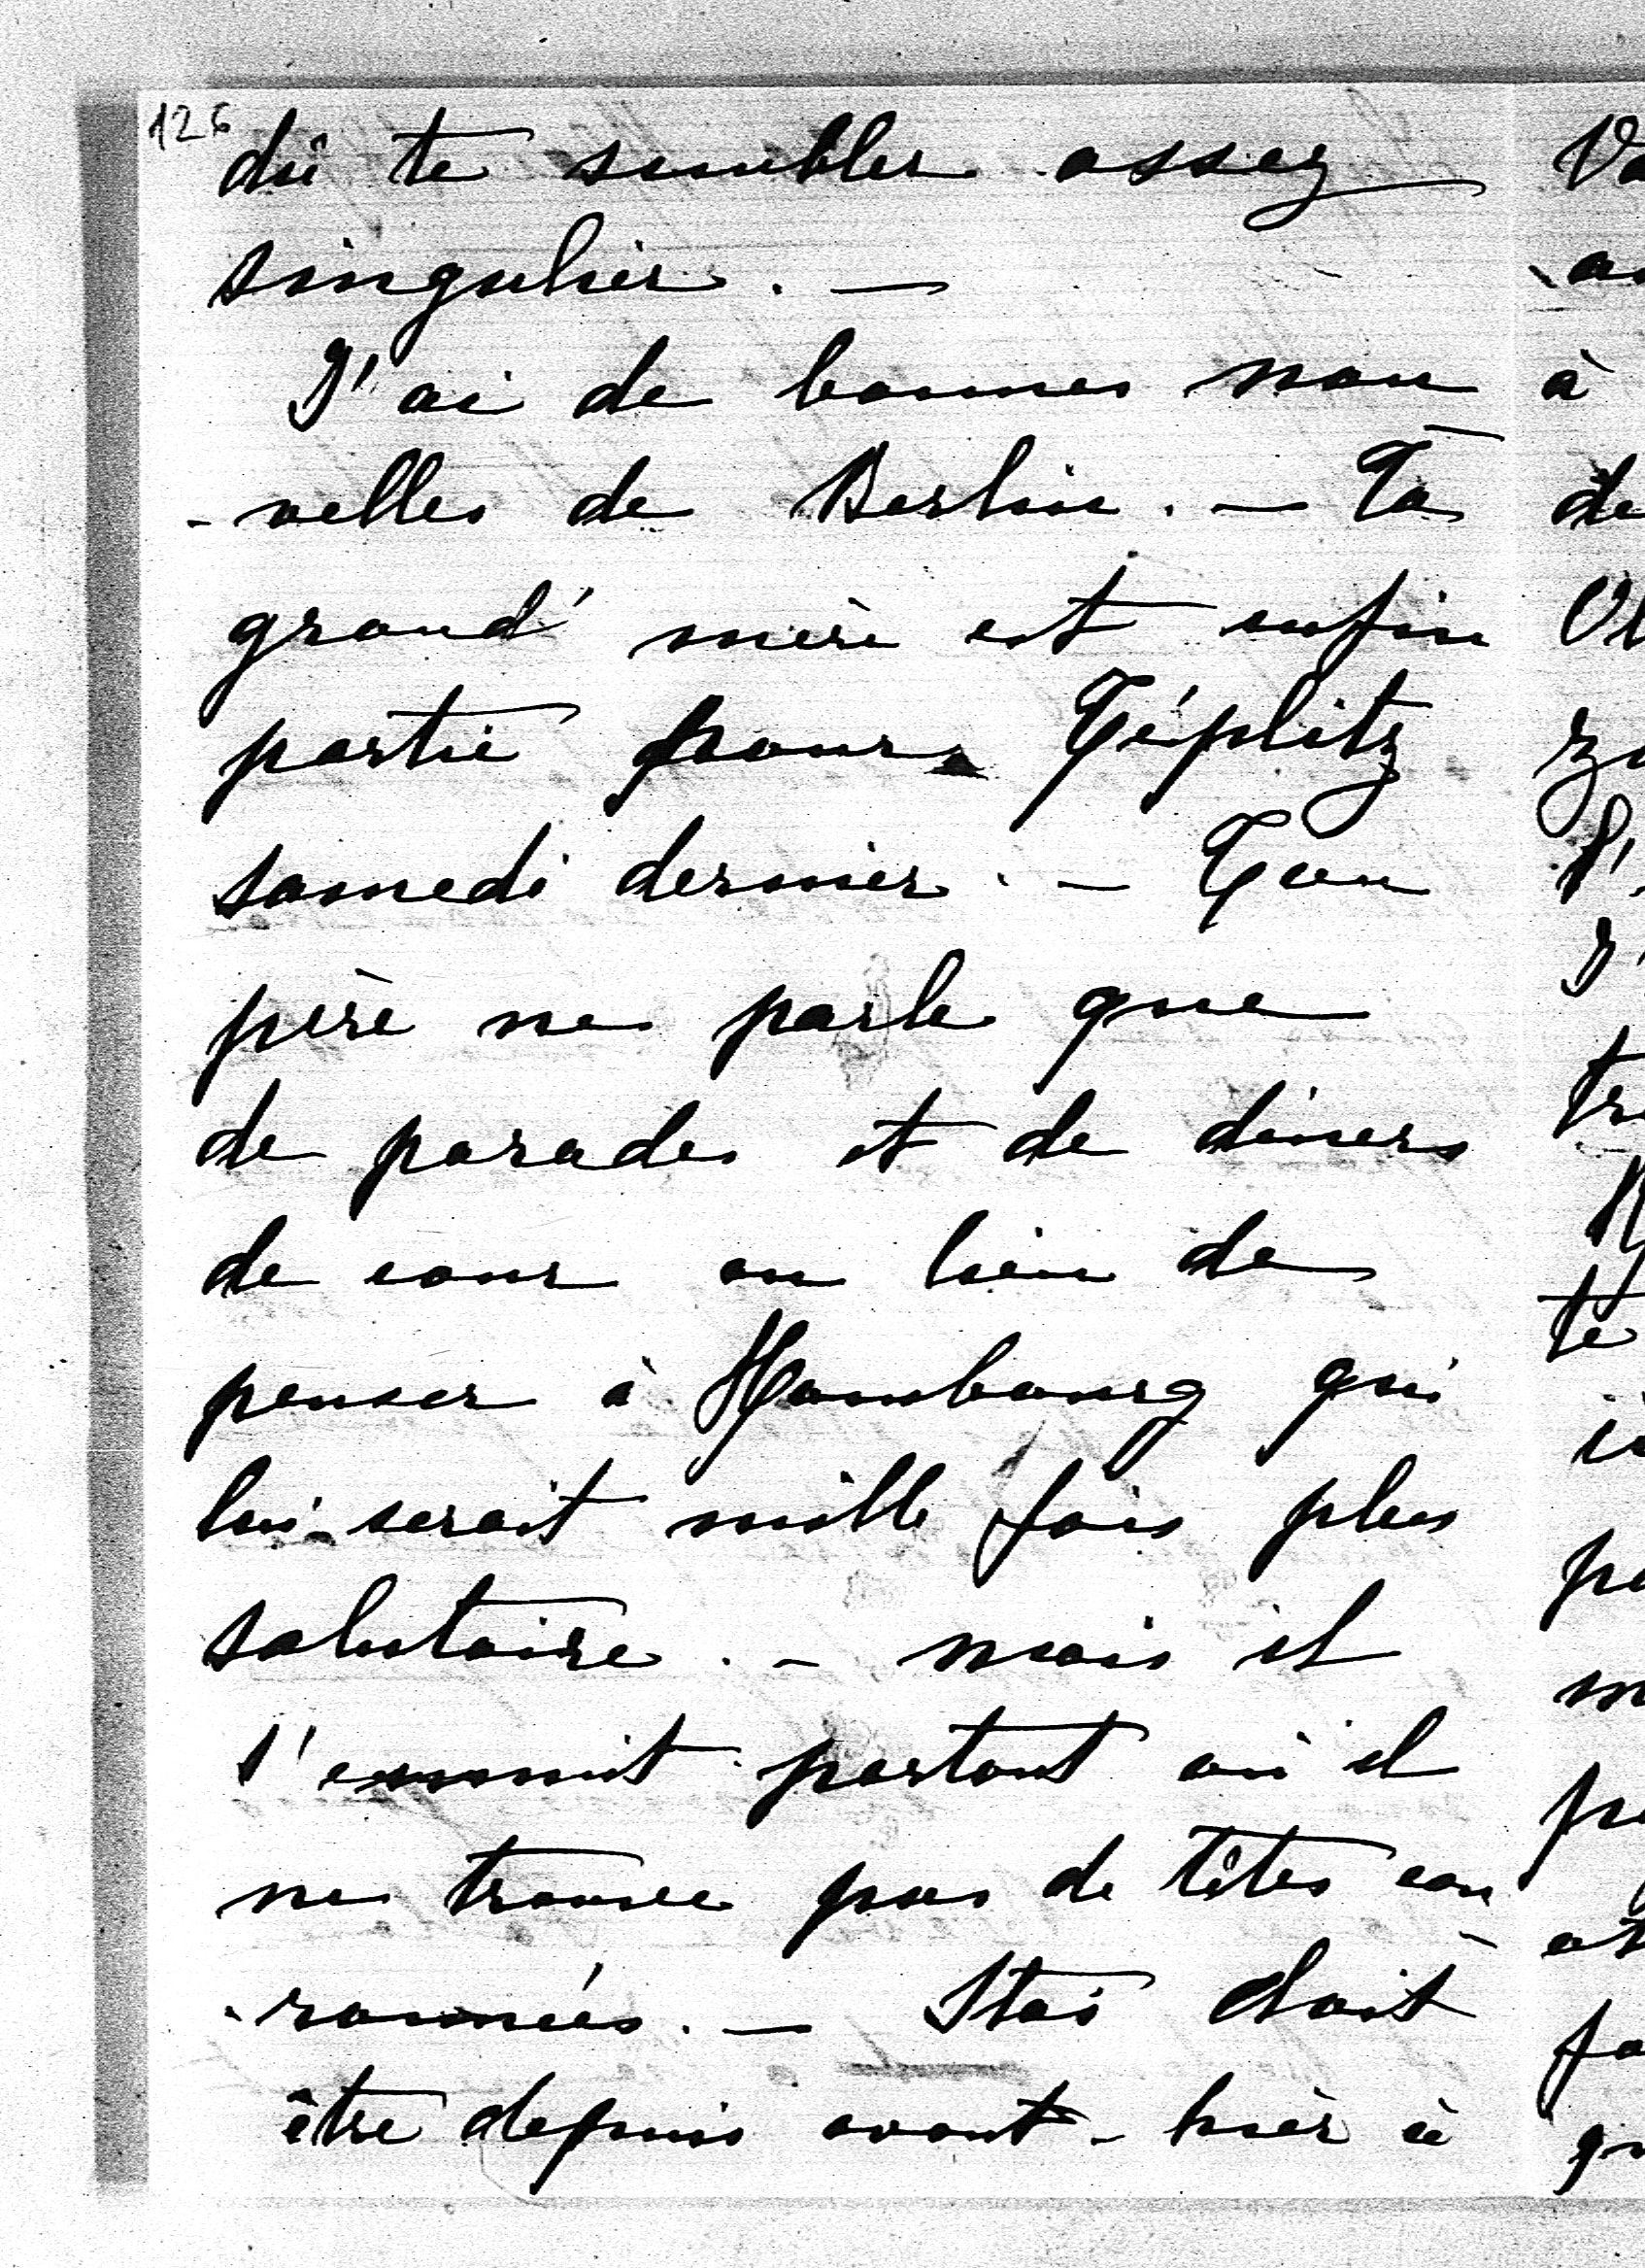 126
dû te sembler assez
singulier. —
J'ai de bonnes nou
-velles de Berlin. — Ta
grand' mère est enfin
partie pour Téplitz
samedi dernier. — Ton
père ne parle que
de parades et de diners
de cour au lieu de
penser à Hombourg qui
lui serait mille fois plus
salutaire. — mais il
s'ennuit partout où il
ne trouve pas de têtes cou
-ronnées. — Stas doit
être depuis avant-hier à